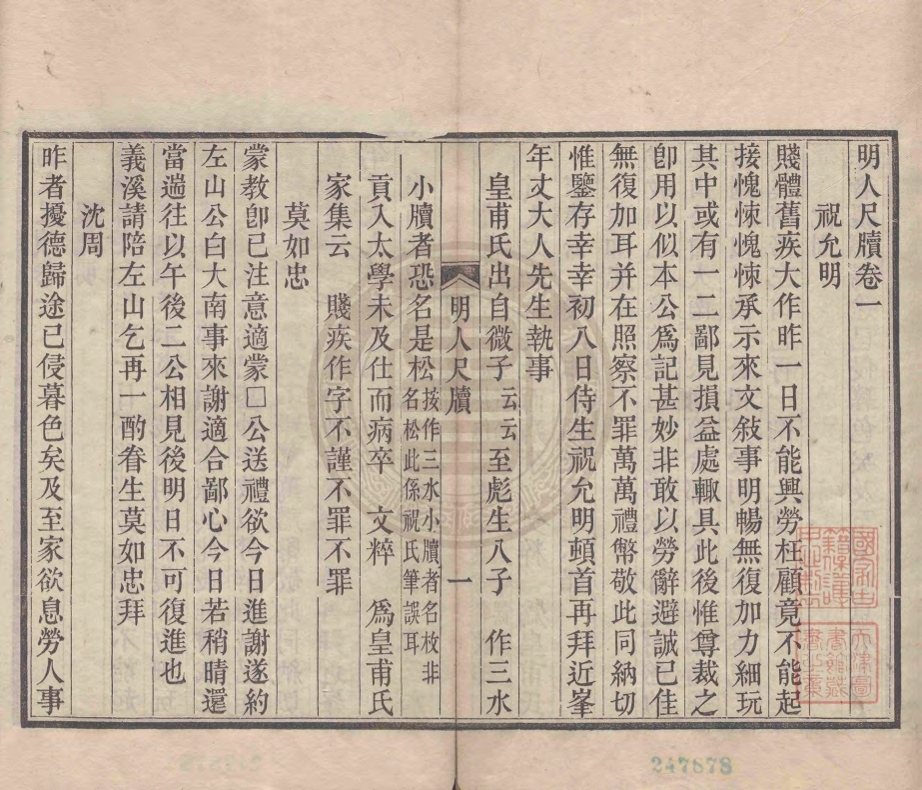 明人尺牘卷一
祝允明
賤體舊疾大作昨一日不能興勞枉顧竟不能起
接愧悚愧悚承示來文敍事明暢無復加力細玩
其中或有一二鄙見損益處輙具此後惟尊裁之
卽用以似本公爲記甚妙非敢以勞辭避誠已佳
無復加耳并在照察不罪萬萬禮幣敬此同納切
惟鑒存幸幸初八日侍生祝允明頓首再拜近峯
年丈大人先生執事
皇甫氏出自微子云云至彪生八子 作三水
小牘者恐名是松按作三水小牘者名枚非
名松此係祝氏筆誤耳
貢入太學未及仕而病卒 文粹 爲皇甫氏
家集云 賤疾作字不謹不罪不罪
莫如忠
蒙教卽已注意適蒙□公送禮欲今日進謝遂約
左山公白大南事來謝適合鄙心今日若稍晴還
當遄往以午後二公相見後明日不可復進也
義溪請陪左山乞再一酌眷生莫如忠拜
沈周
昨者擾德歸途已侵暮色矣及至家欲息勞人事
明人尺牘
一
247878